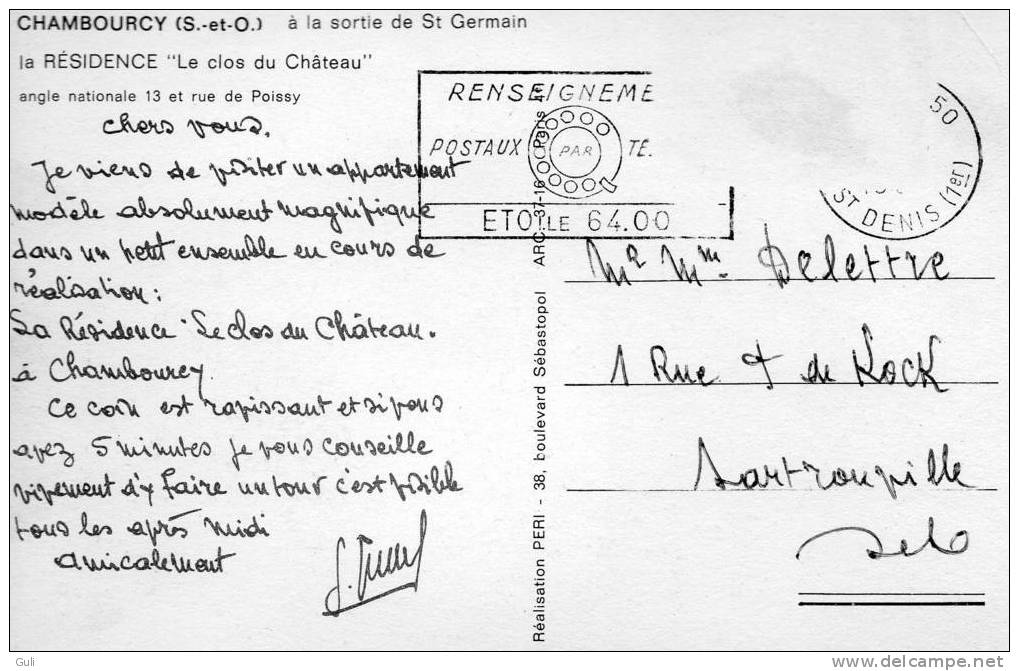 CHAMBOURCY (S.-et-O.) à la sortie de St Germain
la RÉSIDENCE "Le clos du Château"
angle nationale 13 et rue de Poissy
chers vous.
Je viens de visiter un appartement
modèle absolument magnifique
dans un petit ensemble en cours de
réalisation :
La Résidence "Le clos du Château.
à Chambourcy.
Ce coin est ravissant et si vous
avez 5 minutes je vous conseille
vivement d'y faire un tour c'est visible
tous les après midi
amicalement
RENSEIGNEME
POSTAUX PAR TE.
ETOILE 64.00
50
ST DENIS (1er)
Réalisation PERI - 38, boulevard Sébastopol ARC. 37-16 Paris 4e
Mr Mm. Delettre
1 Rue de Kock
Sartrouville
S et O
Guli
delcampe.net